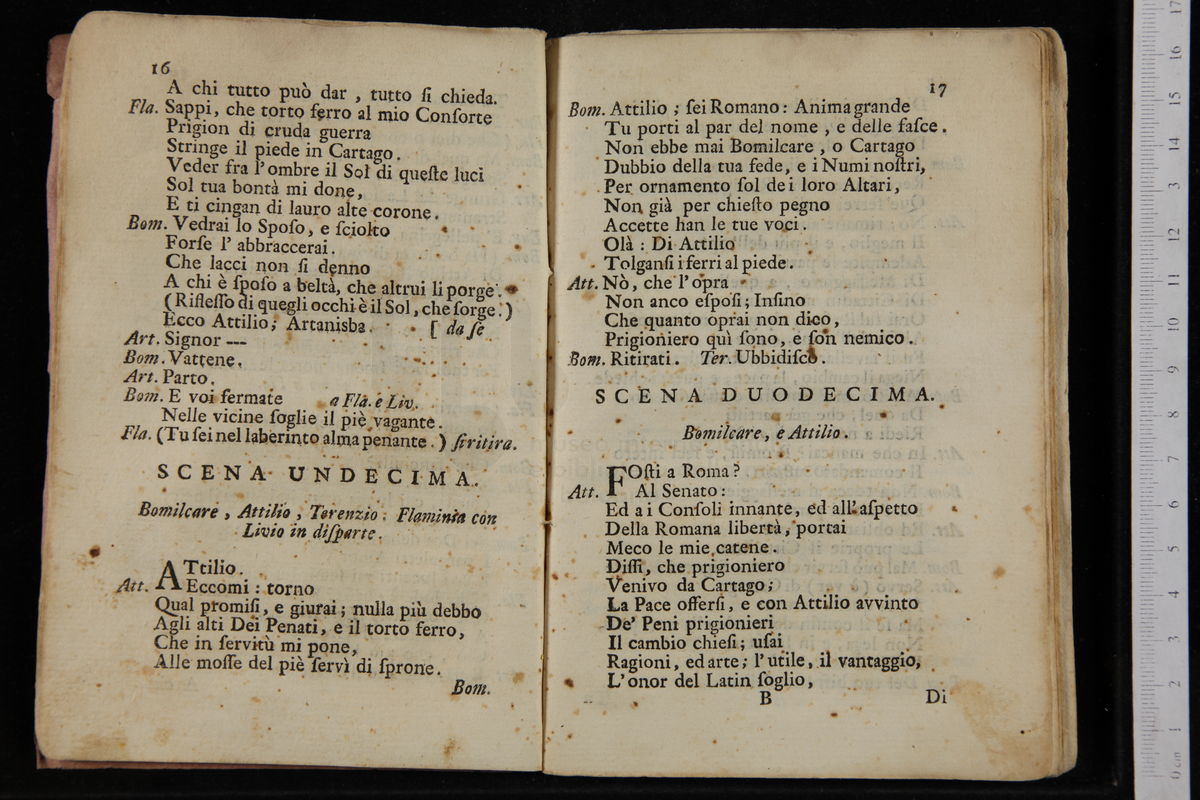 16
A chi tutto può dar , tutto ſi chieda.
Fla. Sappi, che torto ferro al mio Conſorte
Prigion di cruda guerra
Stringe il piede in Cartago.
Veder fra l'ombre il Sol di queſte luci
Sol tua bontà mi done,
E ti cingan di lauro alte corone.
Bom. Vedrai lo Spoſo, e ſciolto
Forſe l' abbraccerai.
Che lacci non ſi denno
A chi è ſpoſo a beltà, che altrui li porge.
( Rifleſſo di quegli occhi è il Sol, che ſorge. )
Ecco Attilio; Artanisba. [ da ſe
Art. Signor ---
Bom. Vattene.
Art. Parto.
Bom. E voi fermate a Fla. e Liv.
Nelle vicine ſoglie il piè vagante.
Fla. (Tu ſei nel laberinto alma penante. ) ſi ritira.
SCENA UNDECIMA.
Bomilcare , Attilio , Terenzio. Flaminia con
Livio in diſparte.
ATtilio.
Att. Eccomi : torno
Qual promiſi, e giurai ; nulla più debbo
Agli alti Dei Penati, e il torto ferro,
Che in ſervitù mi pone,
Alle moſſe del piè ſervì di ſprone.
Bom.
17
Bom. Attilio ; ſei Romano : Anima grande
Tu porti al par del nome , e delle faſce.
Non ebbe mai Bomilcare , o Cartago
Dubbio della tua fede, e i Numi noſtri,
Per ornamento ſol dei loro Altari,
Non già per chieſto pegno
Accette han le tue voci.
Olà : Di Attilio
Tolganſi i ferri al piede.
Att. Nò, che l'opra
Non anco eſpoſi ; Inſino
Che quanto oprai non dico,
Prigioniero quì ſono, e ſon nemico.
Bom. Ritirati. Ter. Ubbidiſco.
SCENA DUODECIMA.
Bomilcare, e Attilio.
FOſti a Roma ?
Att. Al Senato :
Ed a i Conſoli innante, ed all' aſpetto
Della Romana libertà, portai
Meco le mie catene.
Diſſi, che prigioniero
Venivo da Cartago ;
La Pace offerſi, e con Attilio avvinto
De' Peni prigionieri
Il cambio chieſi ; uſai
Ragioni, ed arte ; l'utile, il vantaggio,
L'onor del Latin ſoglio,
B Di
0 cm 1 2 3 4 5 6 7 8 9 10 11 12 13 14 15 16 17